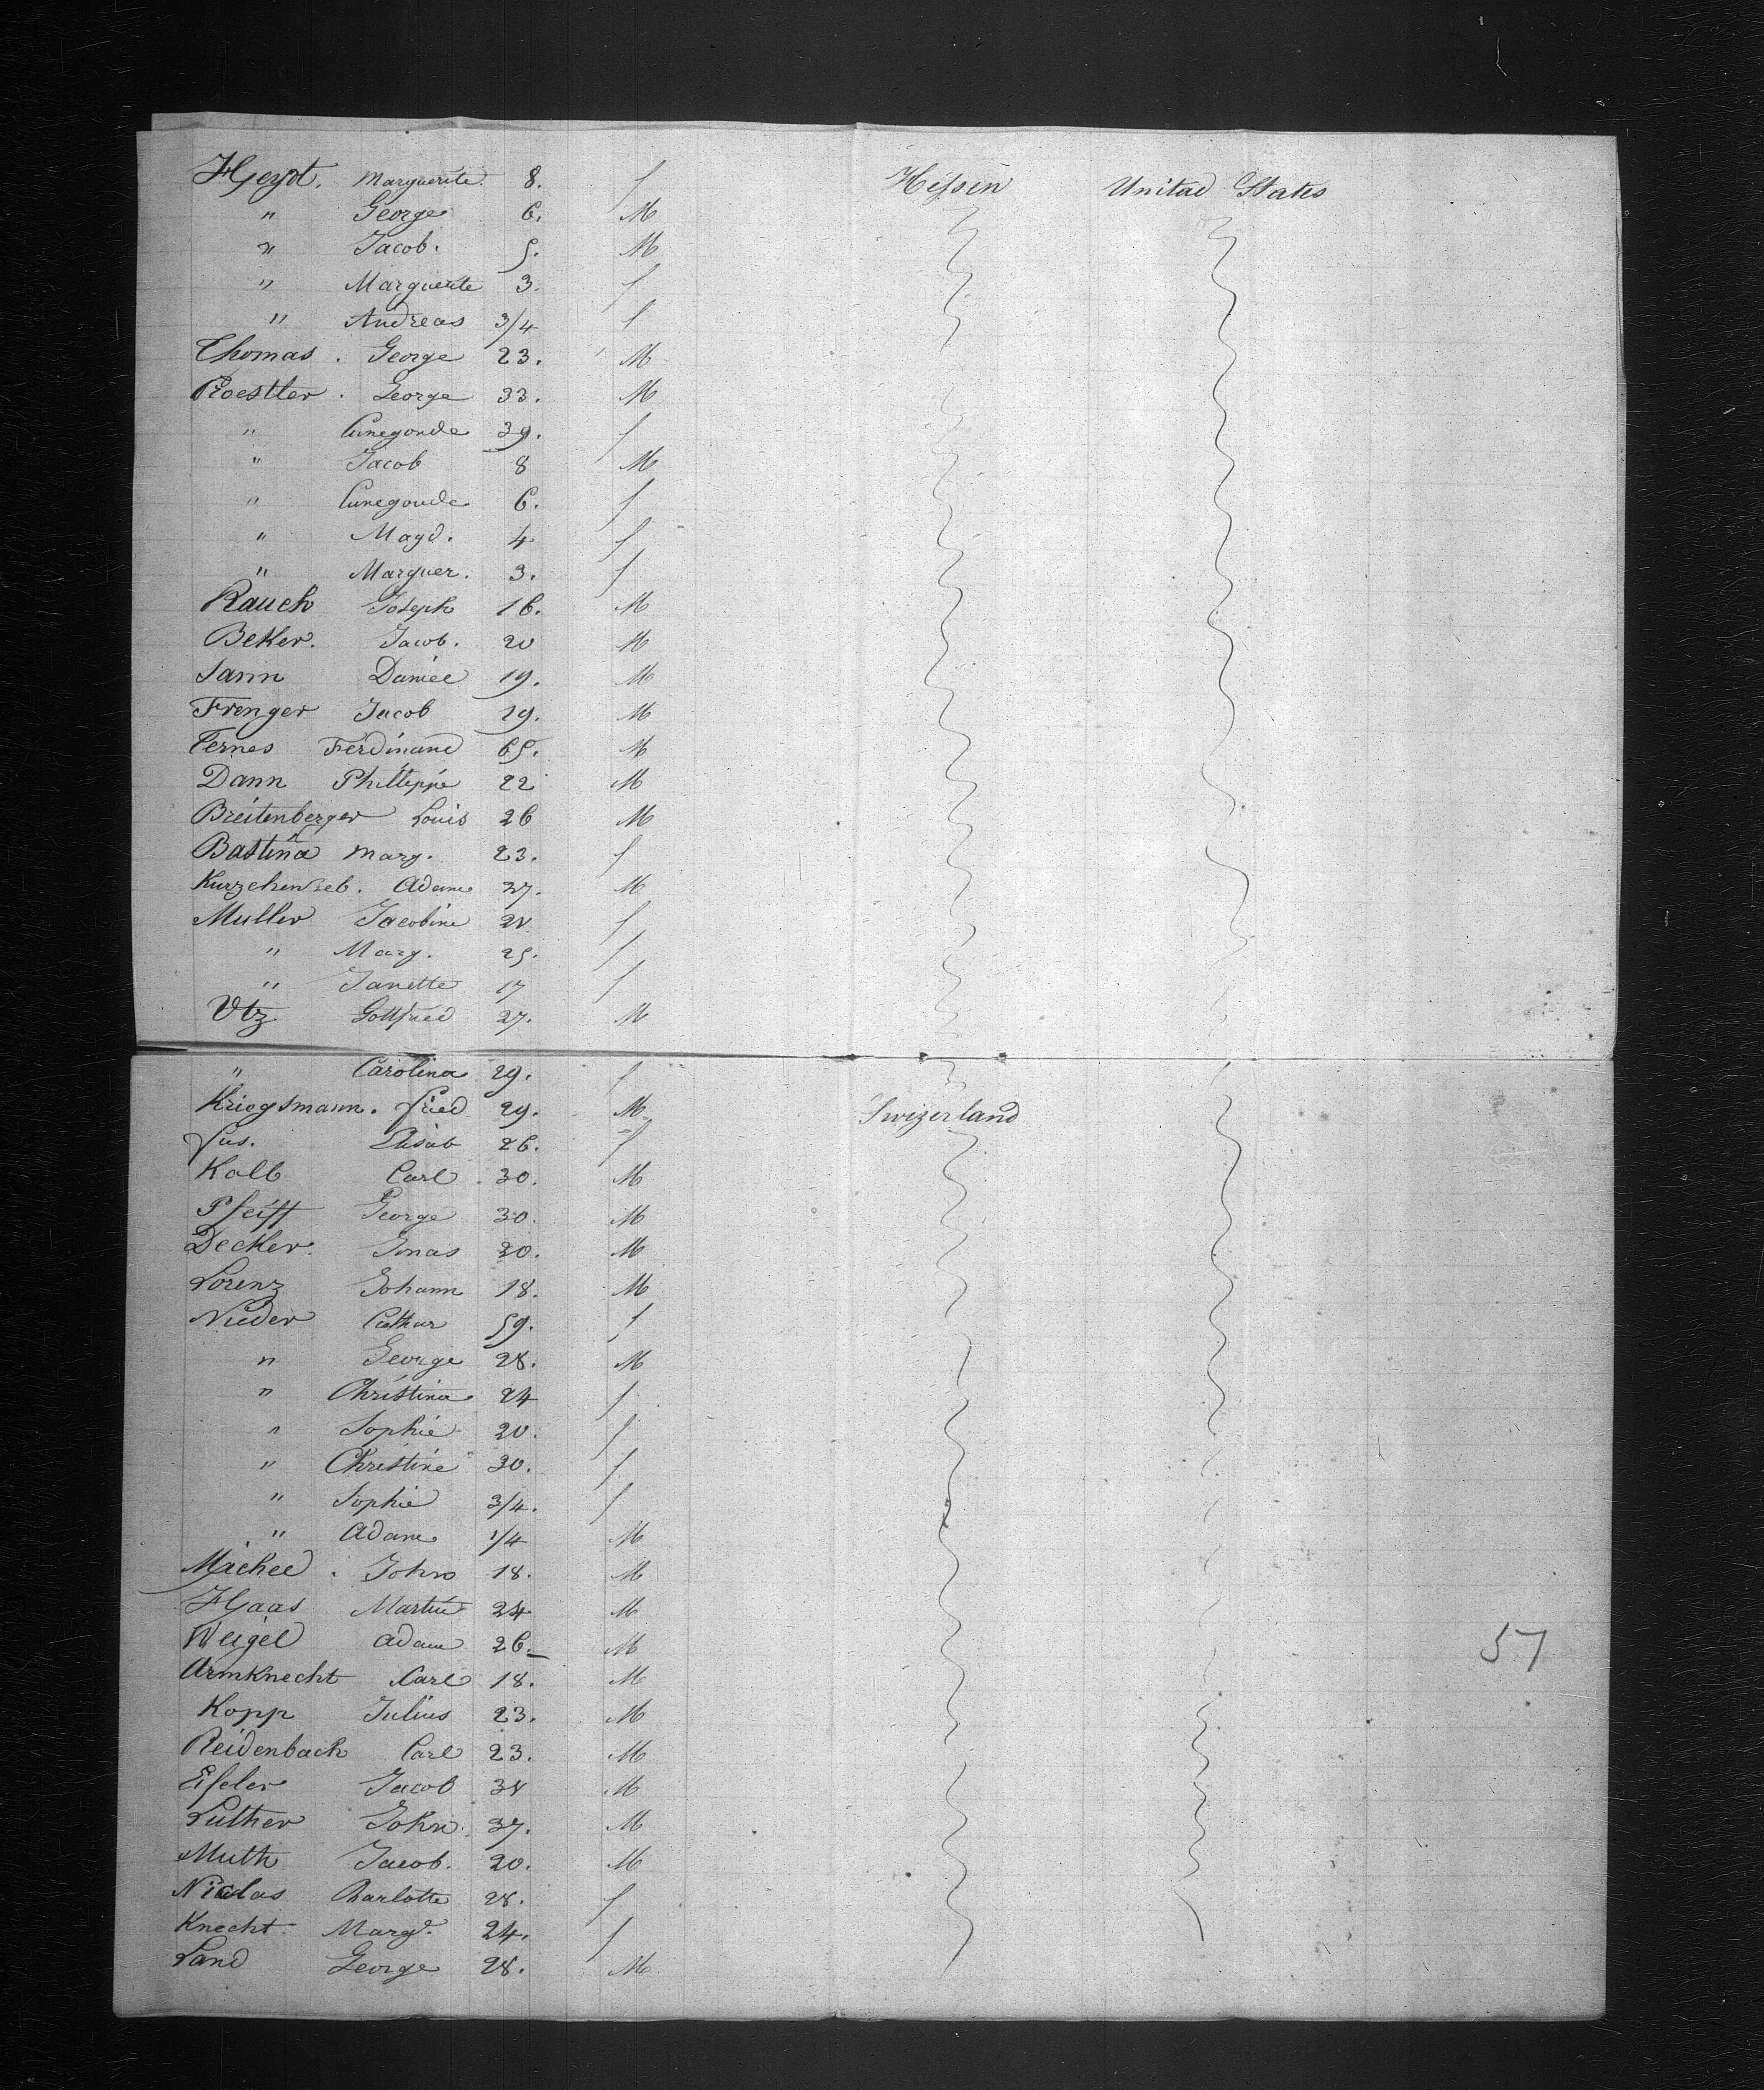 Heydt. Marguerite. 8. f Hessen United States
" George 6. M
" Jacob. 5. M
" Marguerite 3. f
" Andreas 3/4 f
Thomas. George 23. M
Roestler. George 33. M
" Cunegonde 39. f
" Jacob 8 M
" Cunegonde 6. f
" Magd. 4 f
" Marguer. 3. f
Rauch Joseph 16. M
Beker. Jacob. 20 M
Sann Daniel 19. M
Frenger Jacob 29. M
Ternes Ferdinand 65. M
Dann Philleppe 22 M
Breitenberger Louis 26 M
Bastina Marg. 23. f
Adam 37. M
Muller Jacobine 21 f
" Marg. 25. f
" Janette 17 f
Utz Gottfried 27. M
" Carolina 29. f
Kriegsmann. fried 29. M Swizerland
fus. Elisab 26. f
Kalb Carl 30. M
Pfeiff George 30. M
Decker. Jonas 30. M
Lorenz Johann 18. M
Nieder Cathar 59. f
" George 28. M
" Christina 24 f
" Sophie 20. f
" Christine 30. f
" Sophie 3/4. f
" Adam 1/4 M
Mickel. John 18. M
Haas Martin 24 M
Weigel Adam 26. M 57
Armknecht Carl 18. M
Kopp Julius 23. M
Reidenbach Carl 23. M
Eisler Jacob 38 M
Luther John. 37. M
Muth Jacob. 20. M
Niclas Charlotte 28. f
Knecht. Margt. 24. f
Land George 28. M